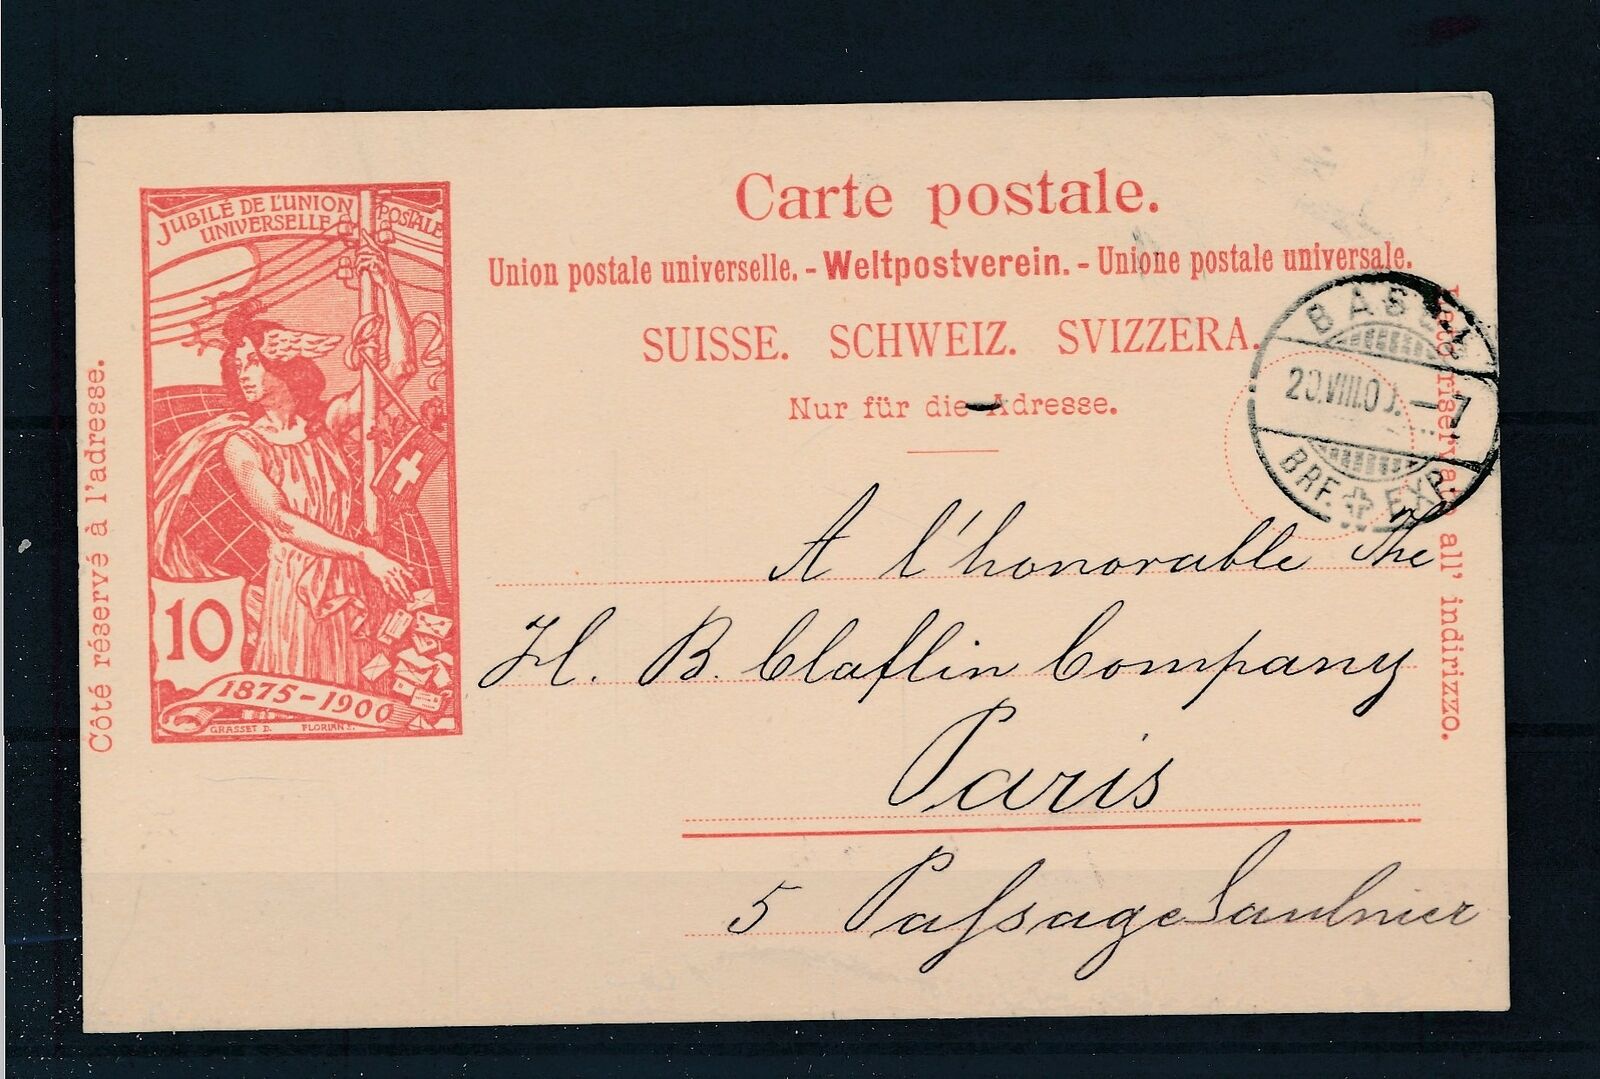 JUBILÉ DE L'UNION POSTALE
UNIVERSELLE
10
1875-1900
GRASSET D. FLORIAN S.
Côté réservé à l'adresse.
Carte postale.
Union postale universelle. - Weltpostverein. - Unione postale universale.
SUISSE. SCHWEIZ. SVIZZERA.
Nur für die Adresse.
Lato riservato all' indirizzo.
BASEL
20.VIII.00. - 7
BRF. EXP.
A l'honorable The
H. B. Claflin Company
Paris
5 Passage Saulnier